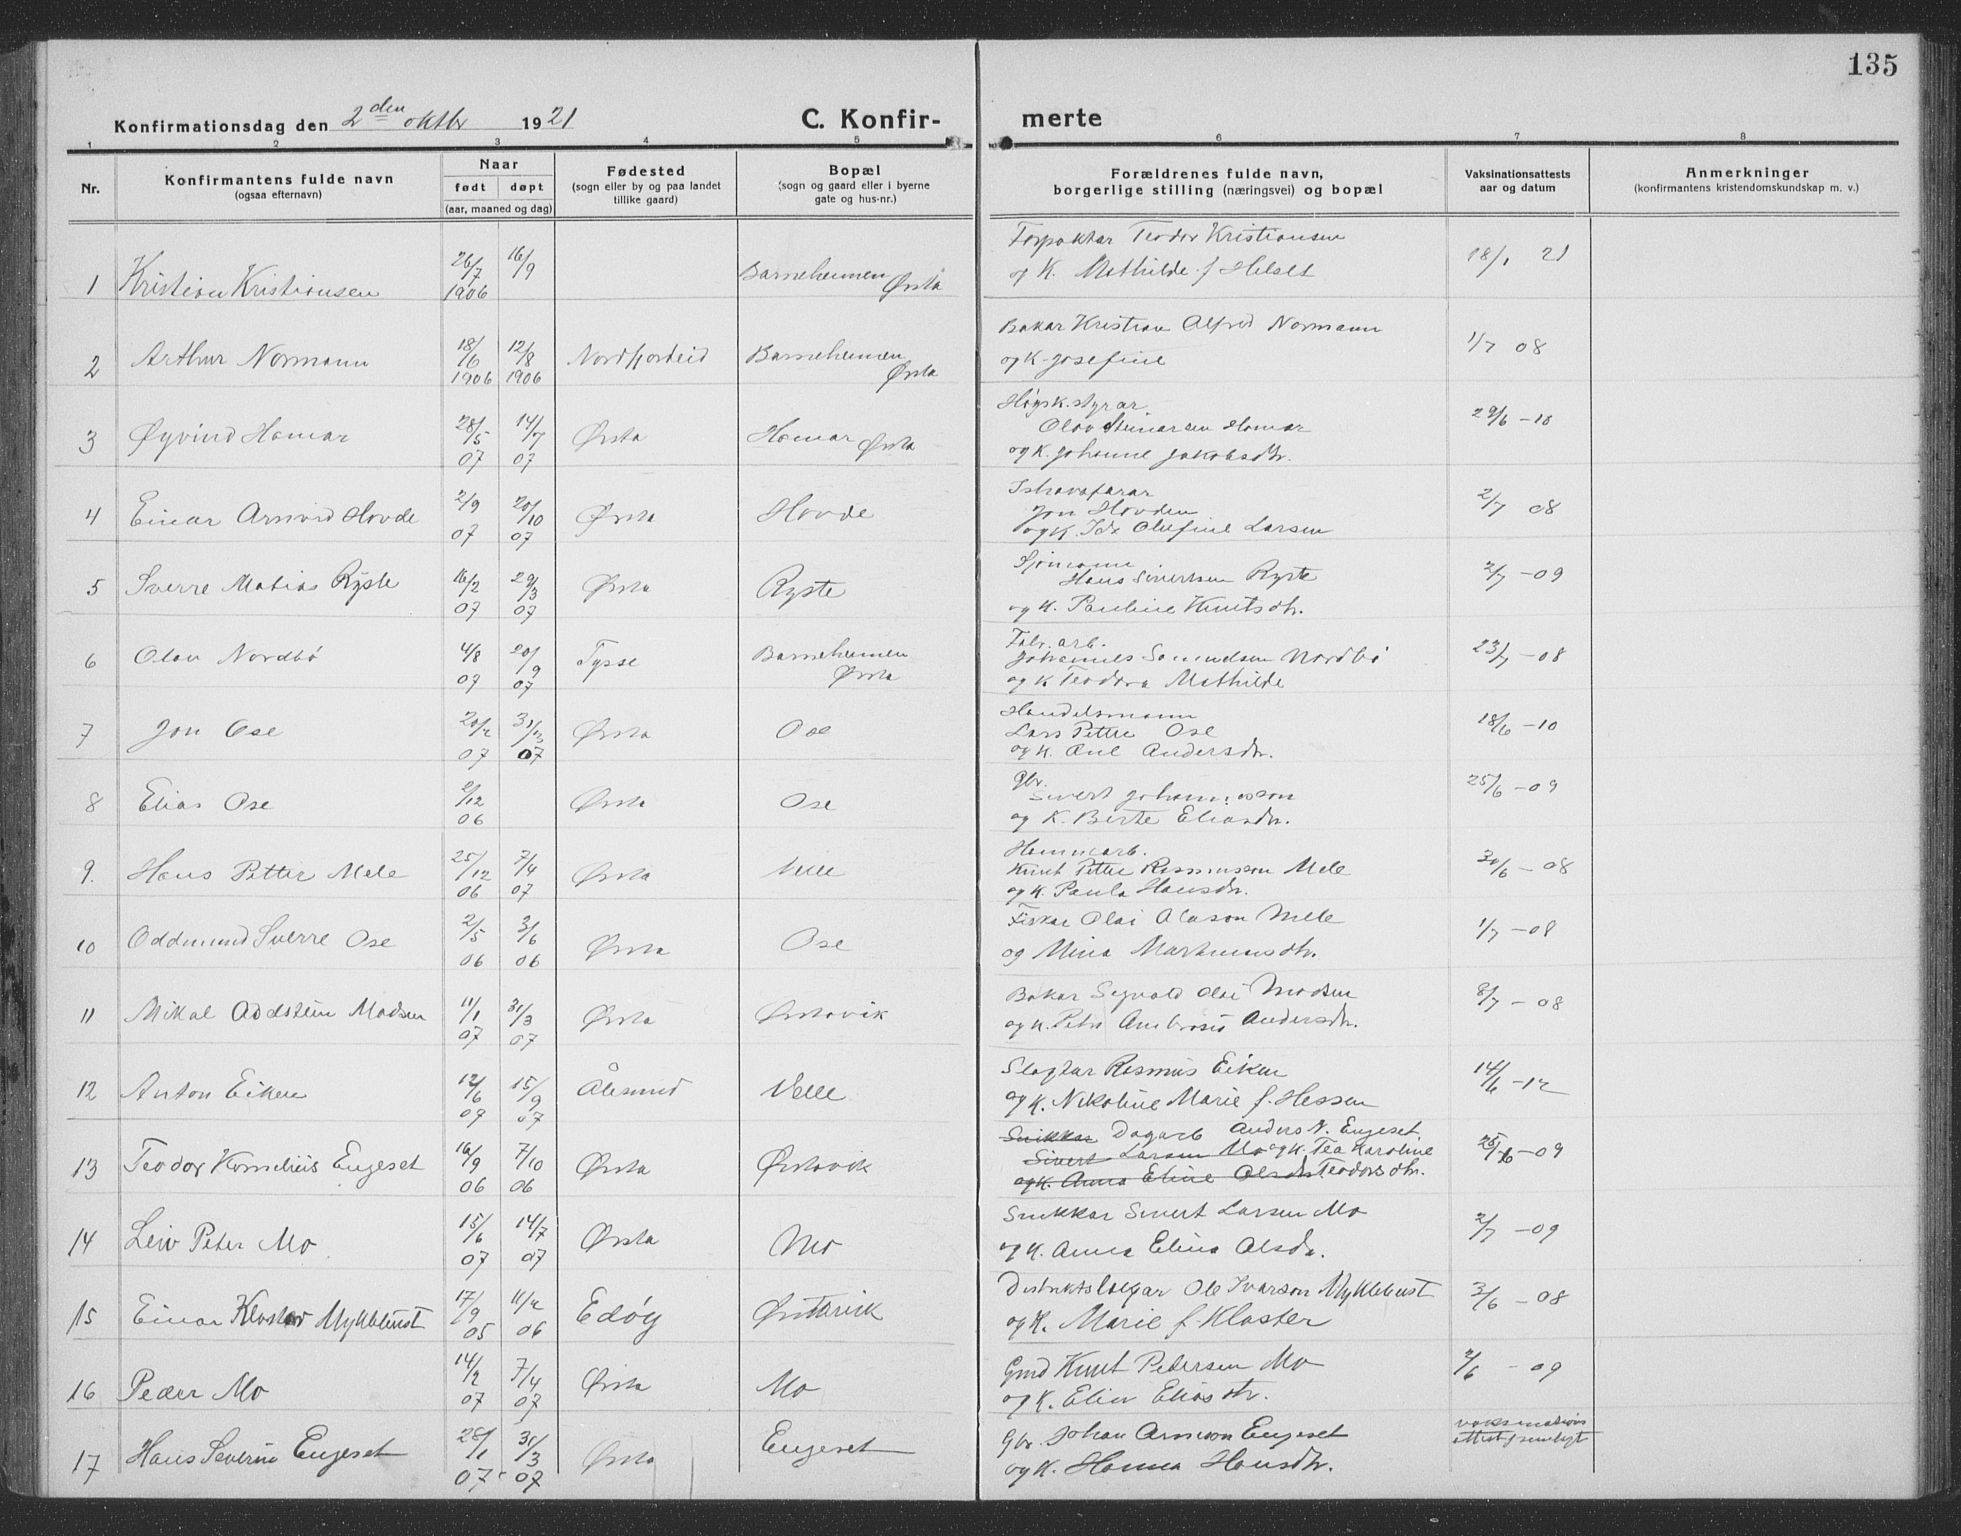 135
Konfirmationsdag den 2den oktbr 1921 C. Konfirmerte
1 2 3 4 5 6 7 8
Nr. Konfirmantens fulde navn (ogsaa efternavn) Naar født døpt (aar, maaned og dag) Fødested (sogn eller by og paa landet tillike gaard) Bopæl (sogn og gaard eller i byerne gate og hus-nr.) Forældrenes fulde navn, borgerlige stilling (næringsvei) og bopæl Vaksinationsattests aar og datum Anmerkninger (konfirmantens kristendomskundskap m. v.)
1 Kristian Kristiansen 26/7 1906 16/9 Barneheimen Ørsta Forpaktar Teodor Kristiansen og K. Mathilde f. Helset 18/1 21
2 Arthur Normann 18/6 1906 12/8 1906 Nordfjordeid Barneheimen Ørsta Bakar Kristian Alfred Normann og K. Josefine 1/7 08
3 Øyvind Hamar 28/5 07 14/7 07 Ørsta Hamar Ørsta Høgsk.styrar Olav Steinarsen Hamar og K. Johanne Jakobsdtr. 29/6 - 10
4 Einar Arnvid Hovde 2/9 07 20/10 07 Ørsta Hovde Ishavsfarar Jon Hovden og K. Ida Olufine Larsen 2/7 08
5 Sverre Matias Ryste 16/2 07 29/3 07 Ørsta Ryste Sjømann Hans Sivertsen Ryste og K. Pauline Knutsdtr. 2/7 - 09
6 Olav Nordbø 4/8 07 20/9 07 Tysse Barneheimen Ørsta Fabr. arb. Johannes Samuelsen Nordbø og K Teodora Mathilde 23/7 - 08
7 Jon Ose 20/2 07 31/3 07 Ørsta Ose Handelsmann Lars Petter Ose og K. Ane Andersdtr. 18/6 - 10
8 Elias Ose 2/12 06 Ørsta Ose Gbr. Sivert Johannesson og K. Berte Eliasdtr. 25/6 - 09
9. Hans Petter Mele 25/12 06 7/4 07 Ørsta Mele Heimearb. Knut Petter Rasmusson Mele og K. Paula Hansdtr. 30/6 - 08
10 Oddmund Sverre Ose 2/5 06 3/6 06 Ørsta Ose Fiskar Olai Olason Mele og Mina Martinusdtr. 1/7 - 08
11 Mikal Adelstein Madsen 11/1 07 31/3 07 Ørsta Ørstavik Bakar Sigvald Olai Madsen og K. Petra Ambrosia Andersdtr. 8/7 - 08
12 Anton Eiken 12/6 07 15/9 07 Ålesund Velle Slagtar Rasmus Eiken og K. Nikoline Marie f. Hessen 14/6 - 12
13 Teodor Kornelius Engeset 16/9 06 7/10 06 Ørsta Ørstavik Snikkar Dagarb Anders Engeset Sivert Larsen Mo og K. Tea Karoline og K. Anna Eline Olsdtr. Teodorsdtr. 25/6 - 09
14 Leiv Peter Mo 15/6 07 14/7 07 Ørsta Mo Snikkar Sivert Larsen Mo og K. Anna Elina Olsdtr. 2/7 - 09
15 Einar Kloster Myklebust 17/9 05 11/2 06 Edøy Ørstavik Distriktslækjar Ole Ivarson Myklebust og K. Marie f. Kloster 3/6 - 08
16 Peder Mo 14/2 07 7/4 07 Ørsta Mo Gmd Knut Pedersen Mo og K. Elin Eliasdtr. 2/6 - 09
17 Hans Severin Engeset 28/1 07 31/3 07 Ørsta Engeset Gbr. Johan Arneson Engeset og K. Hanna Hansdtr. vaksinations attest